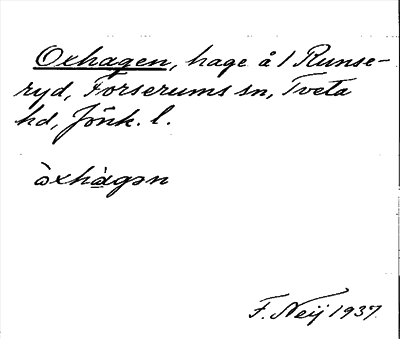 Oxhagen, hage å 1 Runse-
ryd, Forserums sn, Tveta
hd, Jönk. l.
òxhàgən
F. Neij 1937